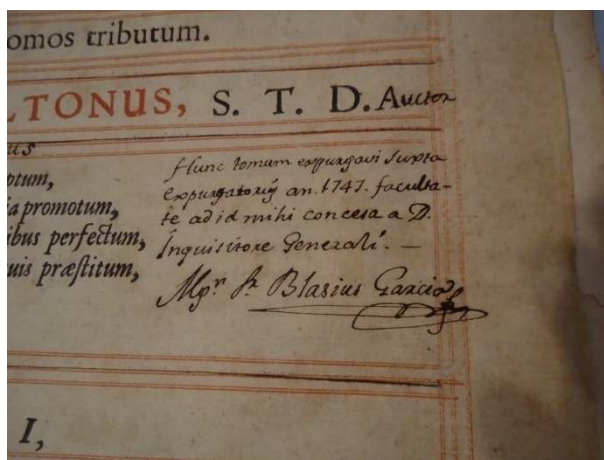 omos tributum.
LTONUS, S. T. D. Auctor
us
ptum,
ia promotum,
ibus perfectum,
uis præſtitum,
Hunc tomum expurgavi Iuxta
expurgatoriũ an. 1747. faculta-
te ad id mihi concesa a D.
Inquisitore Generali. —
Mgr. fr. Blasius Garcia
I,